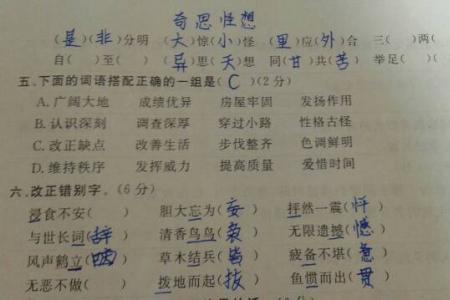 奇思怪想
(是)(非)分明 (大)惊(小)怪 (里)应(外)合 三( )两(
自( )至( ) (异)思(天)想 同(甘)共(苦) 举足( )(
五、下面的词语搭配正确的一组是( C )(2分)
A. 广阔大地 成绩优异 房屋牢固 发扬作用
B. 认识深刻 调查深厚 穿过小路 性格古怪
C. 改正缺点 改善生活 步伐整齐 色调鲜明
D. 维持秩序 发挥威力 提高质量 爱惜时间
六、改正错别字。(6分)
浸食不安( ) 胆大忘为(妄) 抨然一震(怦)
与世长词(辞) 清香鸟鸟(袅) 无限遗撼(憾)
风声鹤立(唳) 草木结兵(皆) 疲备不堪(惫)
无恶不做( ) 拨地而起(拔) 鱼惯而出(贯)